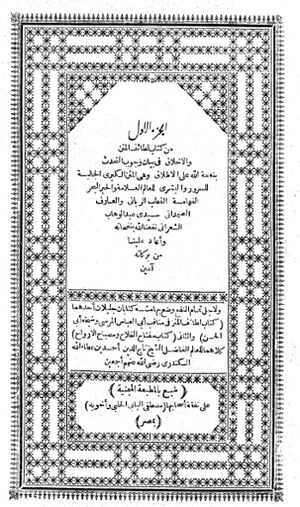 الجزء الاول
من كتاب لطائف المنن
والاخلاق فى بيان وجوب التحدث
بنعمة الله على الاطلاق وهى المنن الكبرى الجالبة
للسرور والبشرى للعالم العلامة والحبر البحر
الفهامة القطب الربانى والعارف
الصمدانى سيدى عبد الوهاب
الشعرانى نفعنا الله بنفحاته
وأعاد علينا
من بركاته
آمين
ولاجل تمام النفع وضع بهامشه كتابان جليلان أحدهما
(كتاب لطائف المنن فى مناقب أبى العباس المرسى وشيخه أبى
الحسن) والثانى (كتاب مفتاح الفلاح ومصباح الارواح)
كلاهما للعالم الفاضل الشيخ تاج الدين أحمد بن عطاء الله
السكندرى رضى الله عنهم أجمعين
(طبع بالمطبعة الميمنية)
على نفقة أصحابها (مصطفى البابى الحلبى وأخويه)
(بمصر)